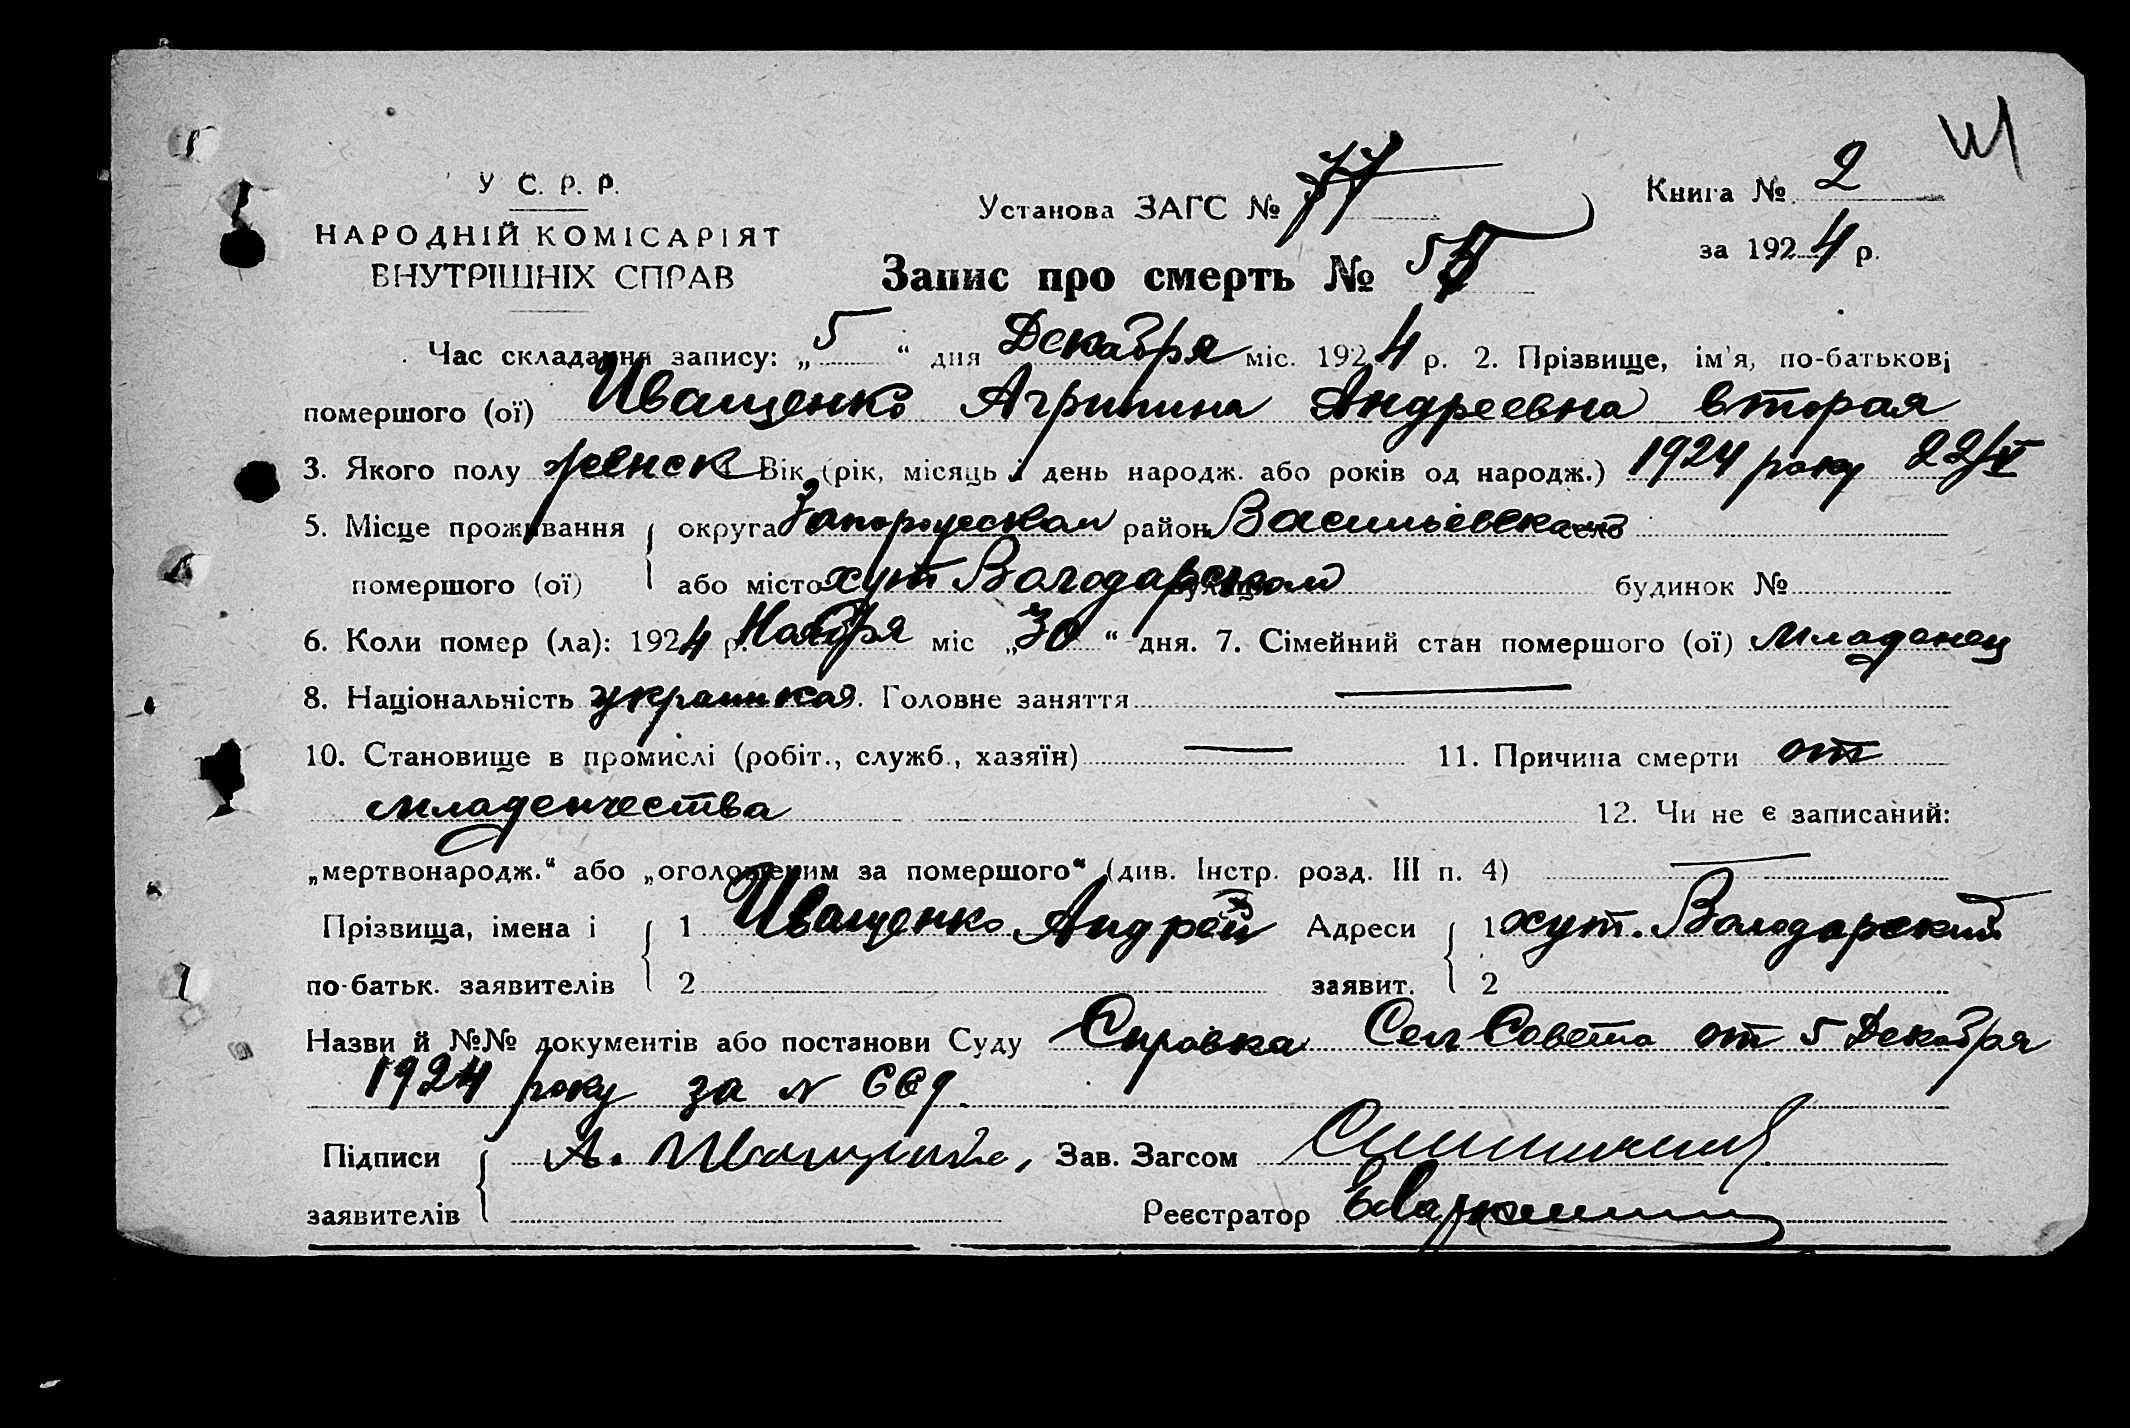 У С. Р. Р.
НАРОДНІЙ КОМІСАРІЯТ
ВНУТРІШНІХ СПРАВ
Установа ЗАГС № 77
Книга № 2
за 1924 р.
Запис про смерть №
Час складання запису: „5“ дня Декабря міс. 1924 р. 2. Прізвище, ім'я, по-батькові
помершого (ої) Иващенко Агрипина Андреевна вторая
3. Якого полу женск Вік (рік, місяць і день народж. або років од народж.) 1924 року 22/V
5. Місце проживання округа Запорожском район Васильевска село
помершого (ої) або місто хут Володарском будинок №
6. Коли помер (ла): 1924 р. Ноября міс „30“ дня. 7. Сімейний стан помершого (ої) младенец
8. Національність Головне заняття
10. Становище в промислі (робіт., служб., хазяїн) 11. Причина смерти от
младенчества 12. Чи не є записаний:
„мертвонародж.“ або „оголошеним за помершого“ (див. Інстр. розд. III п. 4)
Прізвища, імена і 1 Иващенко Андрей Адреси 1 хут. Володарский
по-батьк. заявителів 2 заявит. 2
Назви й №№ документів або постанови Суду Справка Сел Совета от 5 Декабря
1924 року за N 669
Підписи А. Иващенко, Зав. Загсом
заявителів Реєстратор